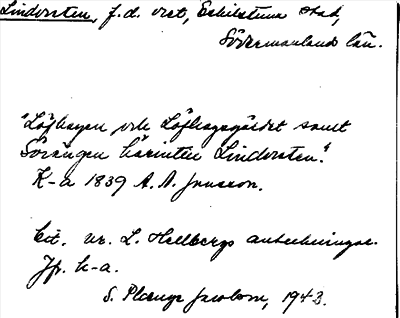 Lindorsten, f.d. ort, Eskilstuna stad,
Södermanlands län.
"Löfhagen och Löfhagsgärdet samt
Sörängen härintill Lindorsten."
K-a 1839 A. A. Jansson.
Cit. ur. L. Hellbergs anteckningar.
Jfr k-a.
S. Plænge Jacobson, 1943.